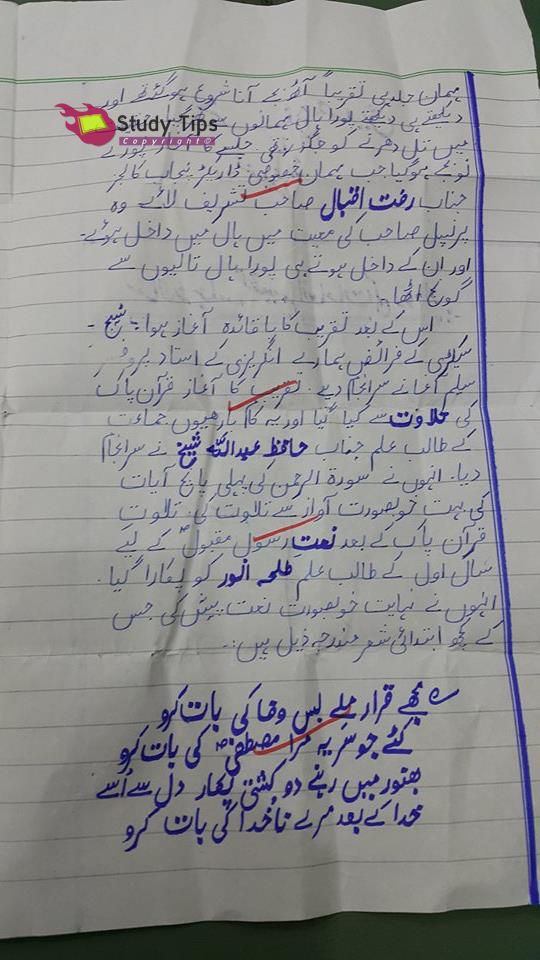 مہمان جلد ہی تقریباً آٹھ بجے آنا شروع ہو گئے تھے اور
دیکھتے ہی دیکھتے پورا ہال مہمانوں سے
Study Tips
Copyright©
میں تل دھرنے کو جگہ نہ تھی جلسے کا آغاز پورے
نو بجے ہو گیا جب مہمان خصوصی ڈائریکٹر پنجاب کالجز
جناب رفعت اقبال صاحب تشریف لائے وہ
پرنسپل صاحب کی معیت میں ہال میں داخل ہوئے۔
اور ان کے داخل ہوتے ہی پورا ہال تالیوں سے
گونج اٹھا۔
اس کے بعد تقریب کا باقائدہ آغاز ہوا۔ سٹیج -
سیکرٹری کے فرائض ہمارے انگریزی کے استاد پروفیسر
سلیم آغا نے سرانجام دیے۔ تقریب کا آغاز قرآن پاک
کی تلاوت سے کیا گیا اور یہ کام بارھیوں جماعت
کے طالب علم جناب حافظ عبداللہ شیخ نے سرانجام
دیا۔ انہوں نے سورۃ الرحمن کی پہلی پانچ آیات
کی بہت خوبصورت آواز سے تلاوت کی۔ تلاوت
قرآن پاک کے بعد نعت رسول مقبولؐ کے لیے
سال اول کے طالب علم طلحہ انور کو پکارا گیا۔
انہوں نے نہایت خوبصورت نعت پیش کی جس
کے کچھ ابتدائی شعر مندرجہ ذیل ہیں:۔
مجھے قرار ملے بس وفا کی بات کرو
کئے جو سر یہ مرا مصطفیٰؐ کی بات کرو
بھنور میں رہنے دو کشتی پکار دل سے اُسے
خدا کے بعد مرے ناخدا کی بات کرو